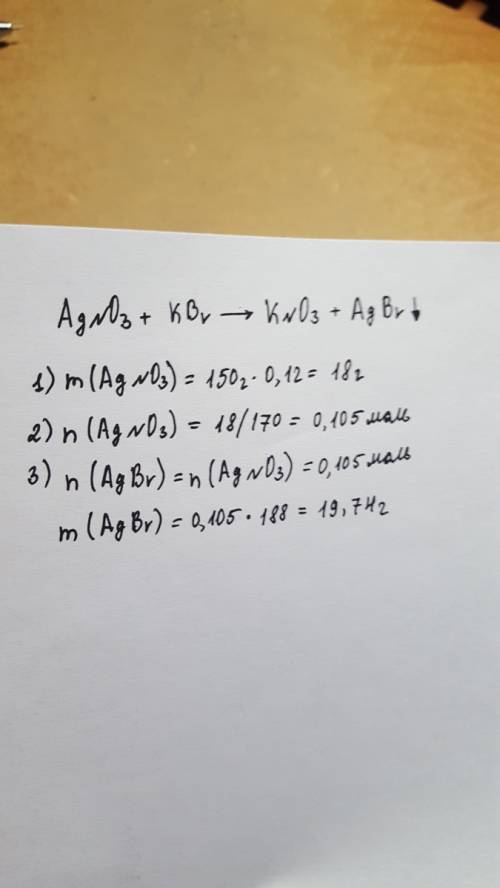 AgNO₃ + KBr → KNO₃ + AgBr↓
1) m(AgNO₃) = 150г · 0,12 = 18г
2) n(AgNO₃) = 18/170 = 0,105 моль
3) n(AgBr) = n(AgNO₃) = 0,105 моль
m(AgBr) = 0,105 · 188 = 19,74г